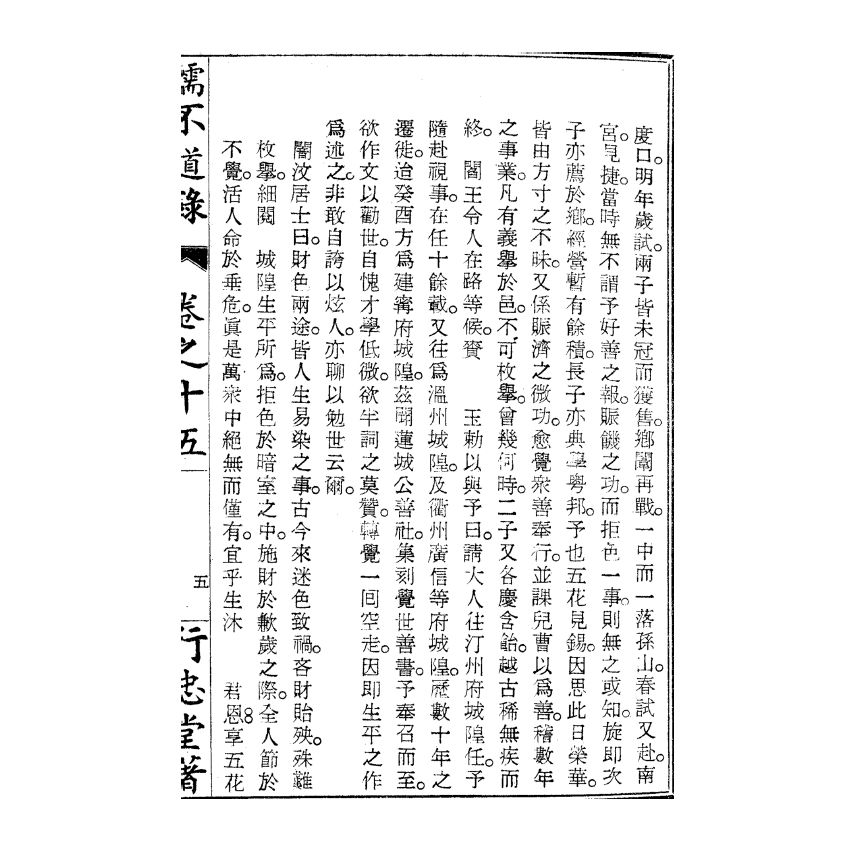 度口。明年歲試。兩子皆未冠而獲售。鄉闈再戰。一中而一落孫山。春試又赴。南
宮。見捷。當時無不謂予好善之報。賑饑之功。而拒色一事。則無之或知。旋即次
子亦薦於鄉。經營暫有餘積。長子亦典學粵邦。予也五花見錫。因思此日榮華。
皆由方寸之不昧。又係賑濟之微功。愈覺衆善奉行。並課兒曹以爲善。稽數年
之事業。凡有義舉於邑。不可枚舉。曾幾何時。二子又各慶含飴。越古稀無疾而
終。 閻王令人在路等候。賫 玉勅以與予曰。請大人往汀州府城隍任。予
隨赴視事。在任十餘載。又往爲溫州城隍。及衢州廣信等府城隍。歷數十年之
遷徙。迨癸酉方爲建寗府城隍。茲聞蓮城公善社。集刻覺世善書。予奉召而至。
欲作文以勸世。自愧才學低微。欲半詞之莫贊。轉覺一囘空走。因即生平之作
爲述之。非敢自誇以炫人。亦聊以勉世云爾。
闇汝居士曰。財色兩途。皆人生易染之事。古今來迷色致禍。吝財貽殃。殊難
枚舉。細閱 城隍生平所爲。拒色於暗室之中。施財於歉歲之際。全人節於
不覺。活人命於垂危。眞是萬衆中絕無而僅有。宜乎生沐 君恩。享五花
儒不道錄 卷之十五 五 行忠堂著
8